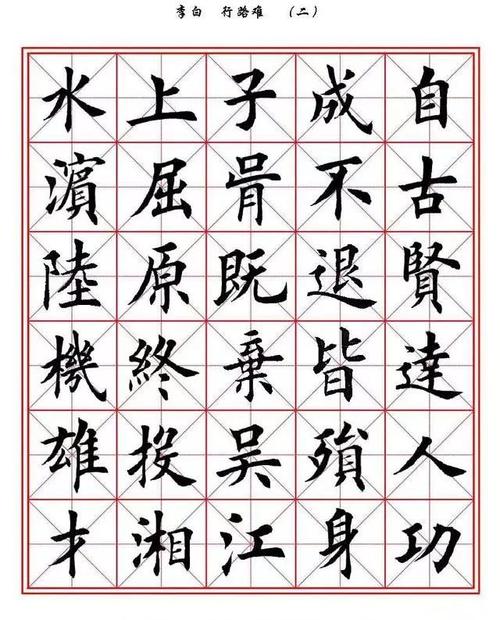 李白 行路难 （二）
自古賢達人功
成不退皆殞身
子胥既棄吴江
上屈原終投湘
水濱陸機雄才